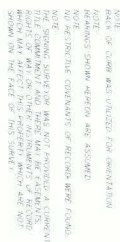 NOTE
BACK OF CURB WAS UTILIZED FOR ORIENTATION
NOTE
BEARINGS SHOWN HEREON ARE ASSUMED.
NOTE
NO RESTRICTIVE COVENANTS OF RECORD WERE FOUND.
NOTE
THE SIGNING SURVEYOR WAS NOT PROVIDED A CURRENT
TITLE COMMITMENT AND THERE MAY BE EASEMENTS,
RIGHTS OF WAY, OR OTHER INSTRUMENTS OF RECORD
WHICH MAY AFFECT THIS PROPERTY WHICH ARE NOT
SHOWN ON THE FACE OF THIS SURVEY.